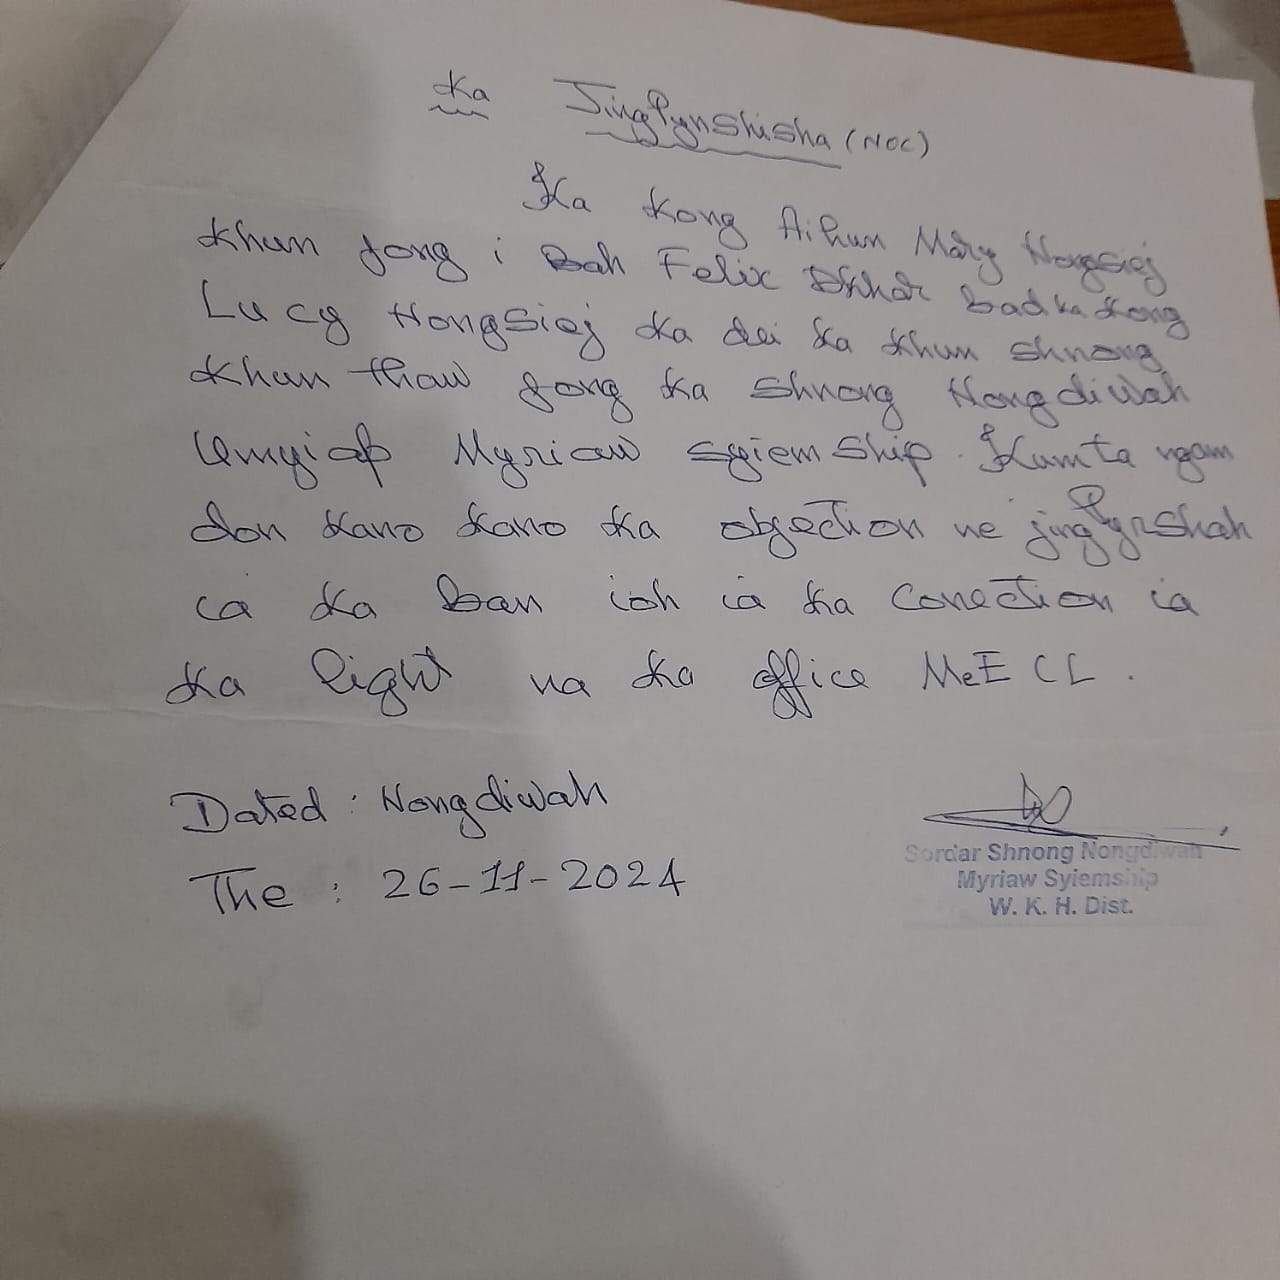 Ka JingPynshisha (NOC)
Ka Kong Aihun Mary Nongsiej
Khun jong i Bah Felix Dkhar bad ka Kong
Lucy Nongsiej Ka dei ka Khun shnong
Khun thaw jong ka Shnong Nongdiwah
Umyiap Myriaw syiemship. Kumta ngam
don kano kano ka objection ne jingPynshah
ia ka ban ioh ia ka Conection ia
ka light na ka office MeECL.
Dated : Nongdiwah
The : 26-11-2024
Sordar Shnong Nongdiwah
Myriaw Syiemship
W. K. H. Dist.